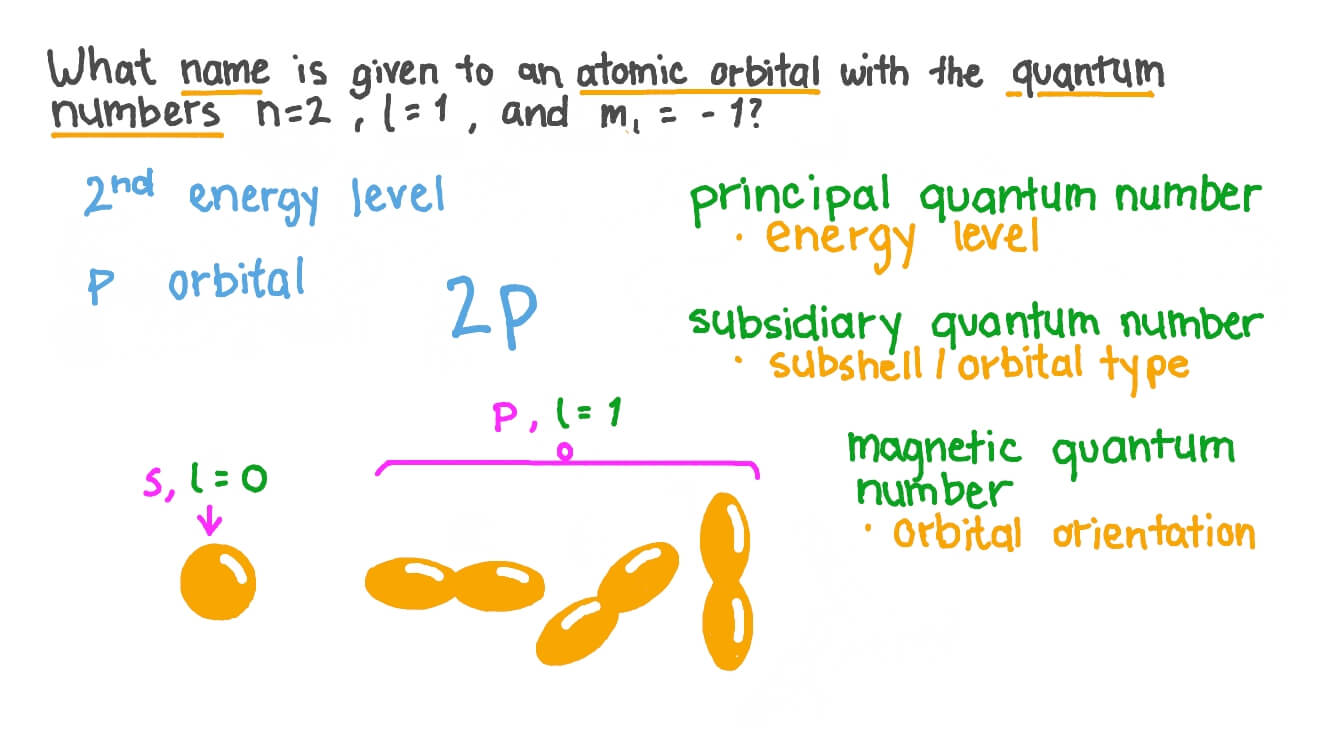 What name is given to an atomic orbital with the quantum
numbers n=2, l=1, and mₗ = -1?
2nd energy level
P orbital
2p
principal quantum number
· energy level
subsidiary quantum number
· subshell / orbital type
magnetic quantum
number
· orbital orientation
P, l=1
s, l=0